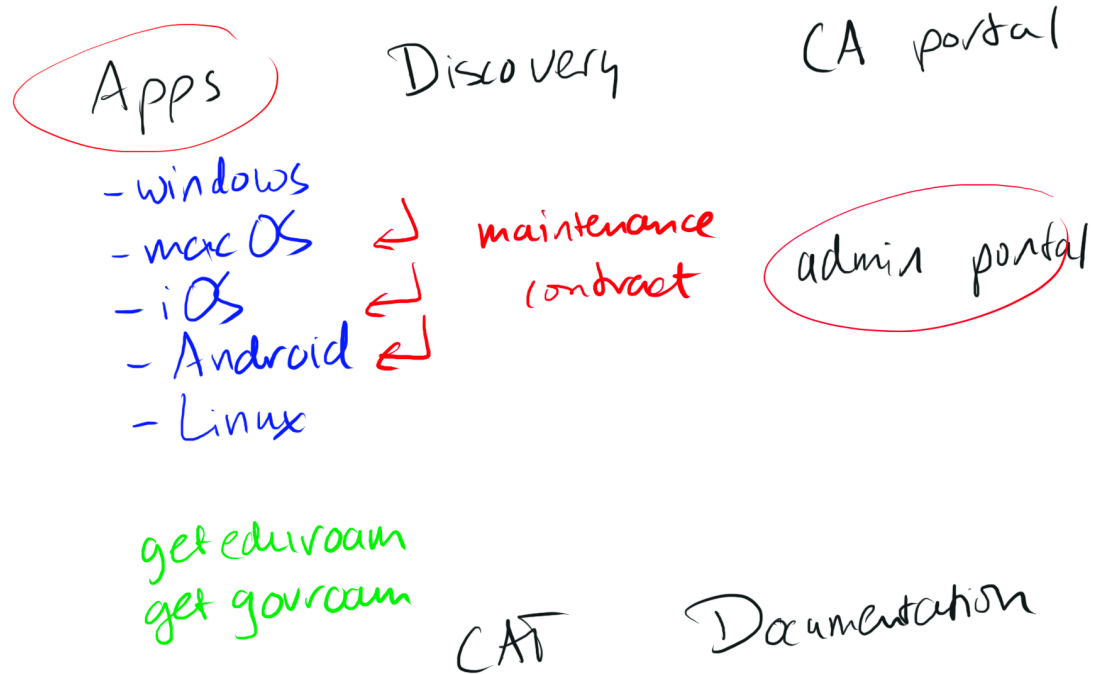 Apps
Discovery
CA portal
- windows
- macOS
- iOS
- Android
- Linux
maintenance
contract
admin portal
geteduroam
get govroam
CAT
Documentation